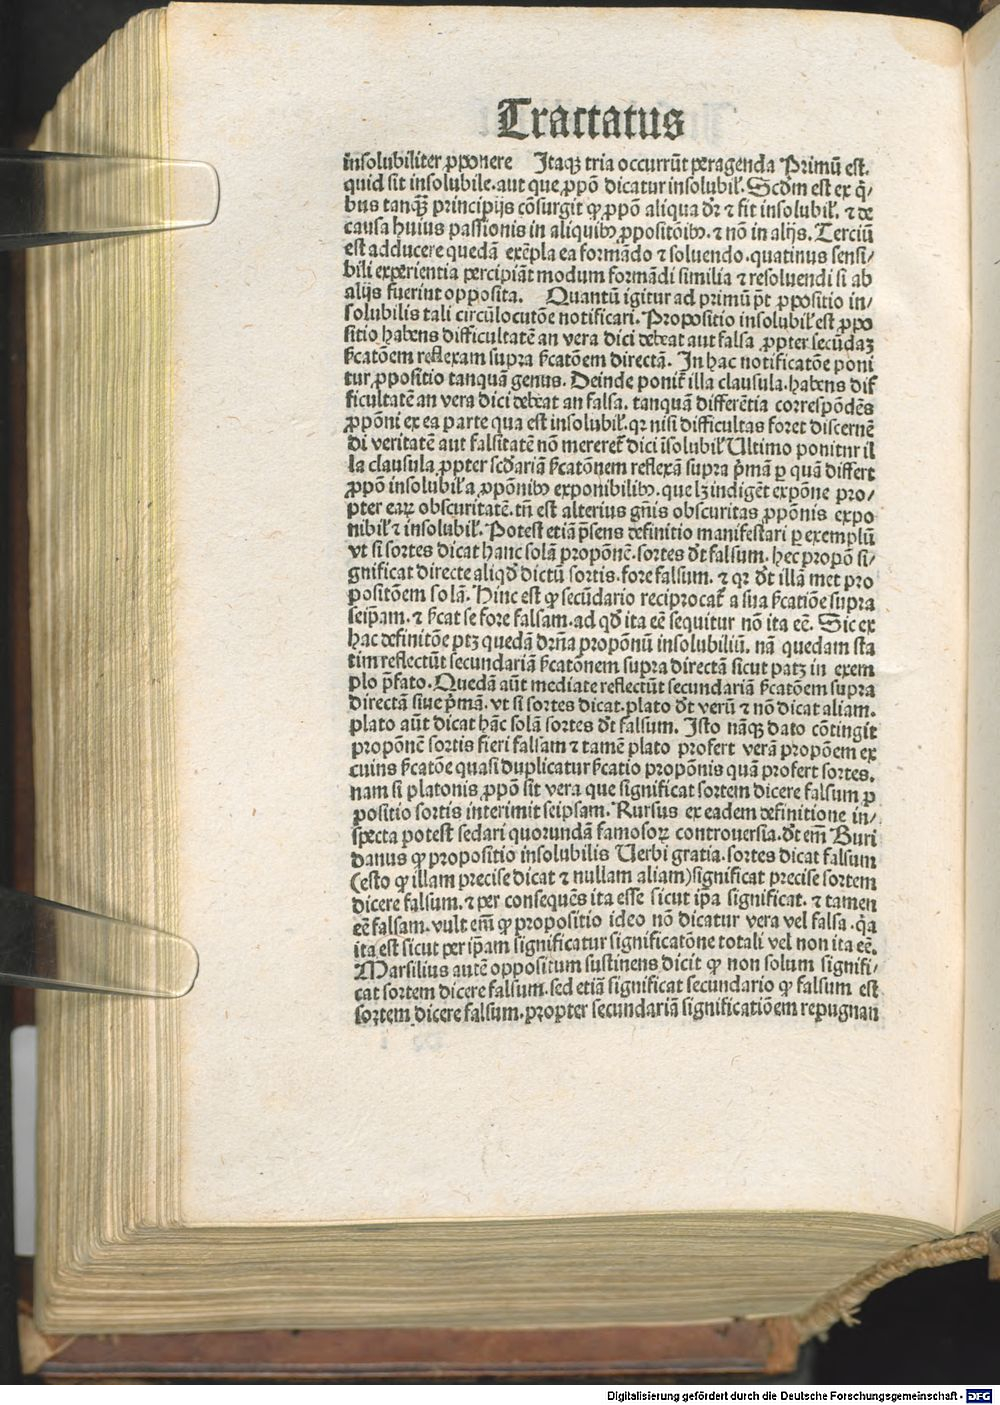 Tractatus
insolubiliter ꝓponere Itaqꝫ tria occurrūt peragenda Primū est.
quid sit insolubile. aut que ꝓpō dicatur insolubil'. Scd̄m est ex q̄/
bus tanqꝫ principijs cōsurgit ꝙ ꝓpō aliqua dr̄ ⁊ fit insolubil'. ⁊ de
causa huius passionis in aliquibꝰ ꝓpositōibꝰ. ⁊ nō in alijs. Terciū
est adducere quedā exēpla ea formādo ⁊ soluendo. quatinus sensi/
bili experientia percipiāt modum formādi similia ⁊ resoluendi si ab
alijs fuerint opposita. Quantū igitur ad primū pt̄ ꝓpositio in/
solubilis tali circūlocutōe notificari. Propositio insolubil' est ꝓpo
sitio habens difficultatē an vera dici debeat aut falsa ꝓpter secūdaꝫ
ſ̄catōem reflexam supra ſ̄catōem directā. In hac notificatōe poni
tur ꝓpositio tanquā genus. Deinde ponit̄ illa clausula. habens dif
ficultatē an vera dici debeat an falsa. tanquā differētia correspōdēs
ꝓpōni ex ea parte qua est insolubil'. qꝛ nisi difficultas foret discernē
di veritatē aut falsitatē nō mereret̄ dici īsolubil' Ultimo ponitur il
la clausula ꝓpter scd̄ariā ſ̄catōnem reflexā supra p̄mā ꝑ quā differt
ꝓpō insolubil' a ꝓpōnibꝰ exponibilibꝰ. que lꝫ indigēt expōne pro/
pter eaꝝ obscuritatē. tn̄ est alterius gn̄is obscuritas ꝓpōnis expo
nibil' ⁊ insolubil'. Potest etiā p̄sens definitio manifestari ꝑ exemplū
vt si sortes dicat hanc solā propōnē. sortes dt̄ falsum. hec propō si/
gnificat directe aliqd̄ dictū sortis. fore falsum. ⁊ qꝛ dt̄ illā met pro
positōem solā. Hinc est ꝙ secūdario reciprocat̄ a sua ſ̄catiōe supra
seip̄am. ⁊ ſ̄cat se fore falsam. ad qd̄ ita eē sequitur nō ita eē. Sic ex
hac definitōe ptꝫ quedā drn̄a propōnū insolubiliū. nā quedam sta
tim reflectūt secundariā ſ̄catōnem supra directā sicut patꝫ in exem
plo p̄fato. Quedā aūt mediate reflectūt secundariā ſ̄catōem supra
directā siue p̄mā. vt si sortes dicat. plato dt̄ verū ⁊ nō dicat aliam.
plato aūt dicat hāc solā sortes dt̄ falsum. Isto nāqꝫ dato cōtingit
propōnē sortis fieri falsam ⁊ tamē plato profert verā propōem ex
cuius ſ̄catōe quasi duplicatur ſ̄catio propōnis quā profert sortes.
nam si platonis ꝓpō sit vera que significat sortem dicere falsum ꝑ
positio sortis interimit seipsam. Rursus ex eadem definitione in/
specta potest sedari quorundā famosoꝝ controuersia. dt̄ em̄ Buri
danus ꝙ propositio insolubilis Uerbi gratia. sortes dicat falsum
(esto ꝙ illam precise dicat ⁊ nullam aliam) significat precise sortem
dicere falsum. ⁊ per consequēs ita esse sicut ip̄a significat. ⁊ tamen
eē falsam. vult em̄ ꝙ propositio ideo nō dicatur vera vel falsa. q̄a
ita est sicut per ip̄am significatur significatōne totali vel non ita eē.
Marsilius autē oppositum sustinens dicit ꝙ non solum signifi/
cat sortem dicere falsum. sed etiā significat secundario ꝙ falsum est
sortem dicere falsum. propter secundariā significatiōem repugnan
Digitalisierung gefördert durch die Deutsche Forschungsgemeinschaft - DFG